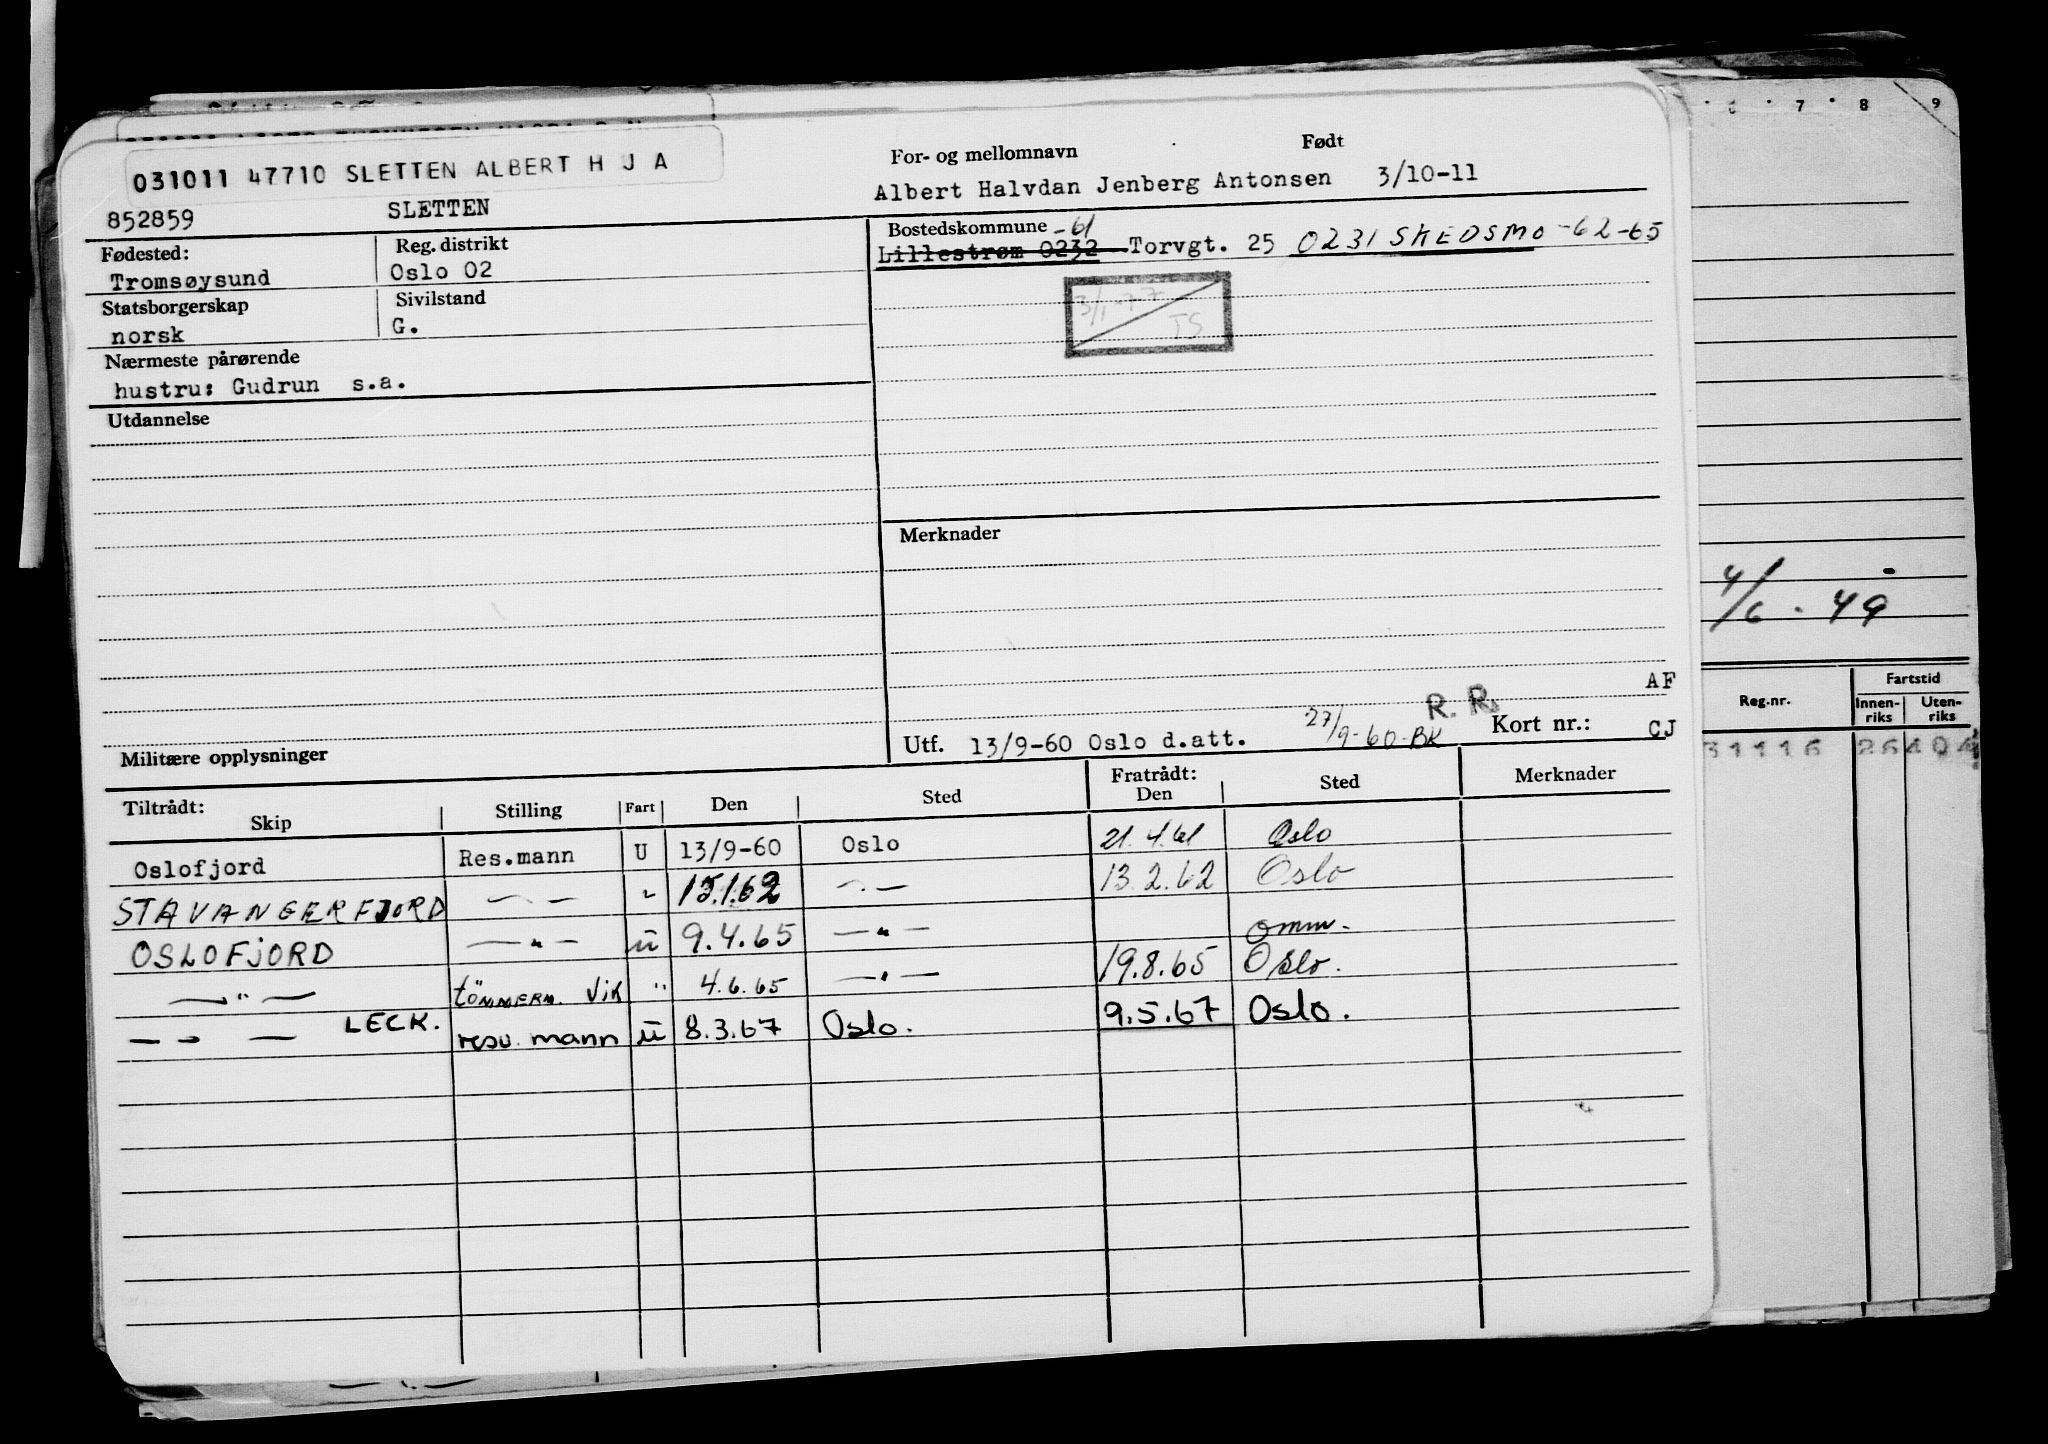 031011 47710 SLETTEN ALBERT H J A
852859 SLETTEN
For- og mellomnavn Født
Albert Halvdan Jenberg Antonsen 3/10-11
Fødested: Reg. distrikt
Tromsøysund Oslo 02
Bostedskommune -61
Lillestrøm 0232 Torvgt. 25 0231 SKEDSMO -62-65
Statsborgerskap Sivilstand
norsk G.
3/1-77
TS
Nærmeste pårørende
hustru: Gudrun s.a.
Utdannelse
Merknader
AF
R. R.
Utf. 13/9-60 Oslo d.att. 27/9-60-BK Kort nr.: CJ
Militære opplysninger
Tiltrådt: Fratrådt:
Skip Stilling Fart Den Sted Den Sted Merknader
Oslofjord Res.mann U 13/9-60 Oslo 21.4.61 Oslo
STAVANGERFJORD —"— " 15.1.62 —"— 13.2.62 Oslo
OSLOFJORD —"— u 9.4.65 —"— omm.
—"— tömmerm. vik " 4.6.65 —"— 19.8.65 Oslo.
—"— LECK. resv. mann u 8.3.67 Oslo. 9.5.67 Oslo.
6 7 8 9
4/6 - 49
Reg.nr. Fartstid
Innen-riks Uten-riks
31116 26 404